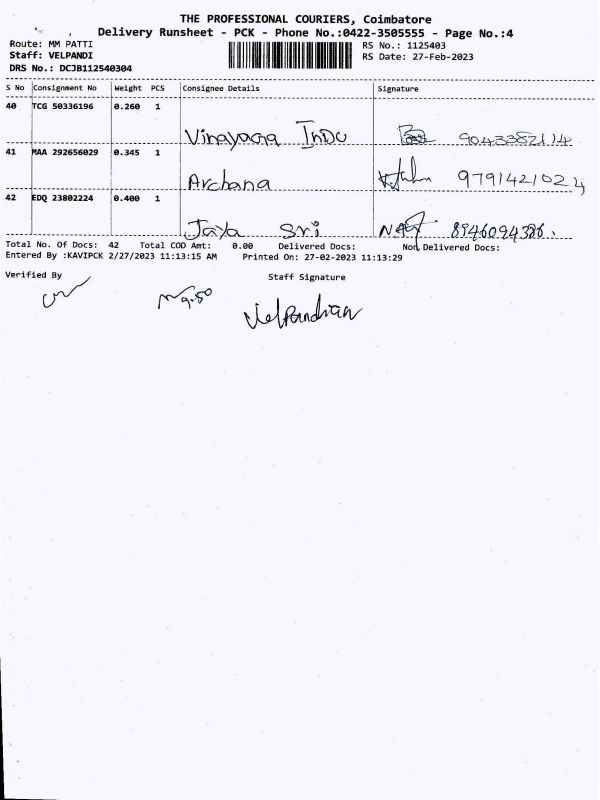 THE PROFESSIONAL COURIERS, Coimbatore
Delivery Runsheet - PCK - Phone No.:0422-3505555 - Page No.:4
Route: MM PATTI
RS No.: 1125403
Staff: VELPANDI
RS Date: 27-Feb-2023
DRS No.: DCJB112540304
S No Consignment No Weight PCS Consignee Details Signature
40 TCG 50336196 0.260 1
Vinayaga Indu 9043382114
41 MAA 292656029 0.345 1
Archana 9791421022
42 EDQ 23802224 0.400 1
Jaya Sri 8946094386.
Total No. Of Docs: 42 Total COD Amt: 0.00 Delivered Docs: Non Delivered Docs:
Entered By :KAVIPCK 2/27/2023 11:13:15 AM Printed On: 27-02-2023 11:13:29
Verified By Staff Signature
9.50
Velpandian